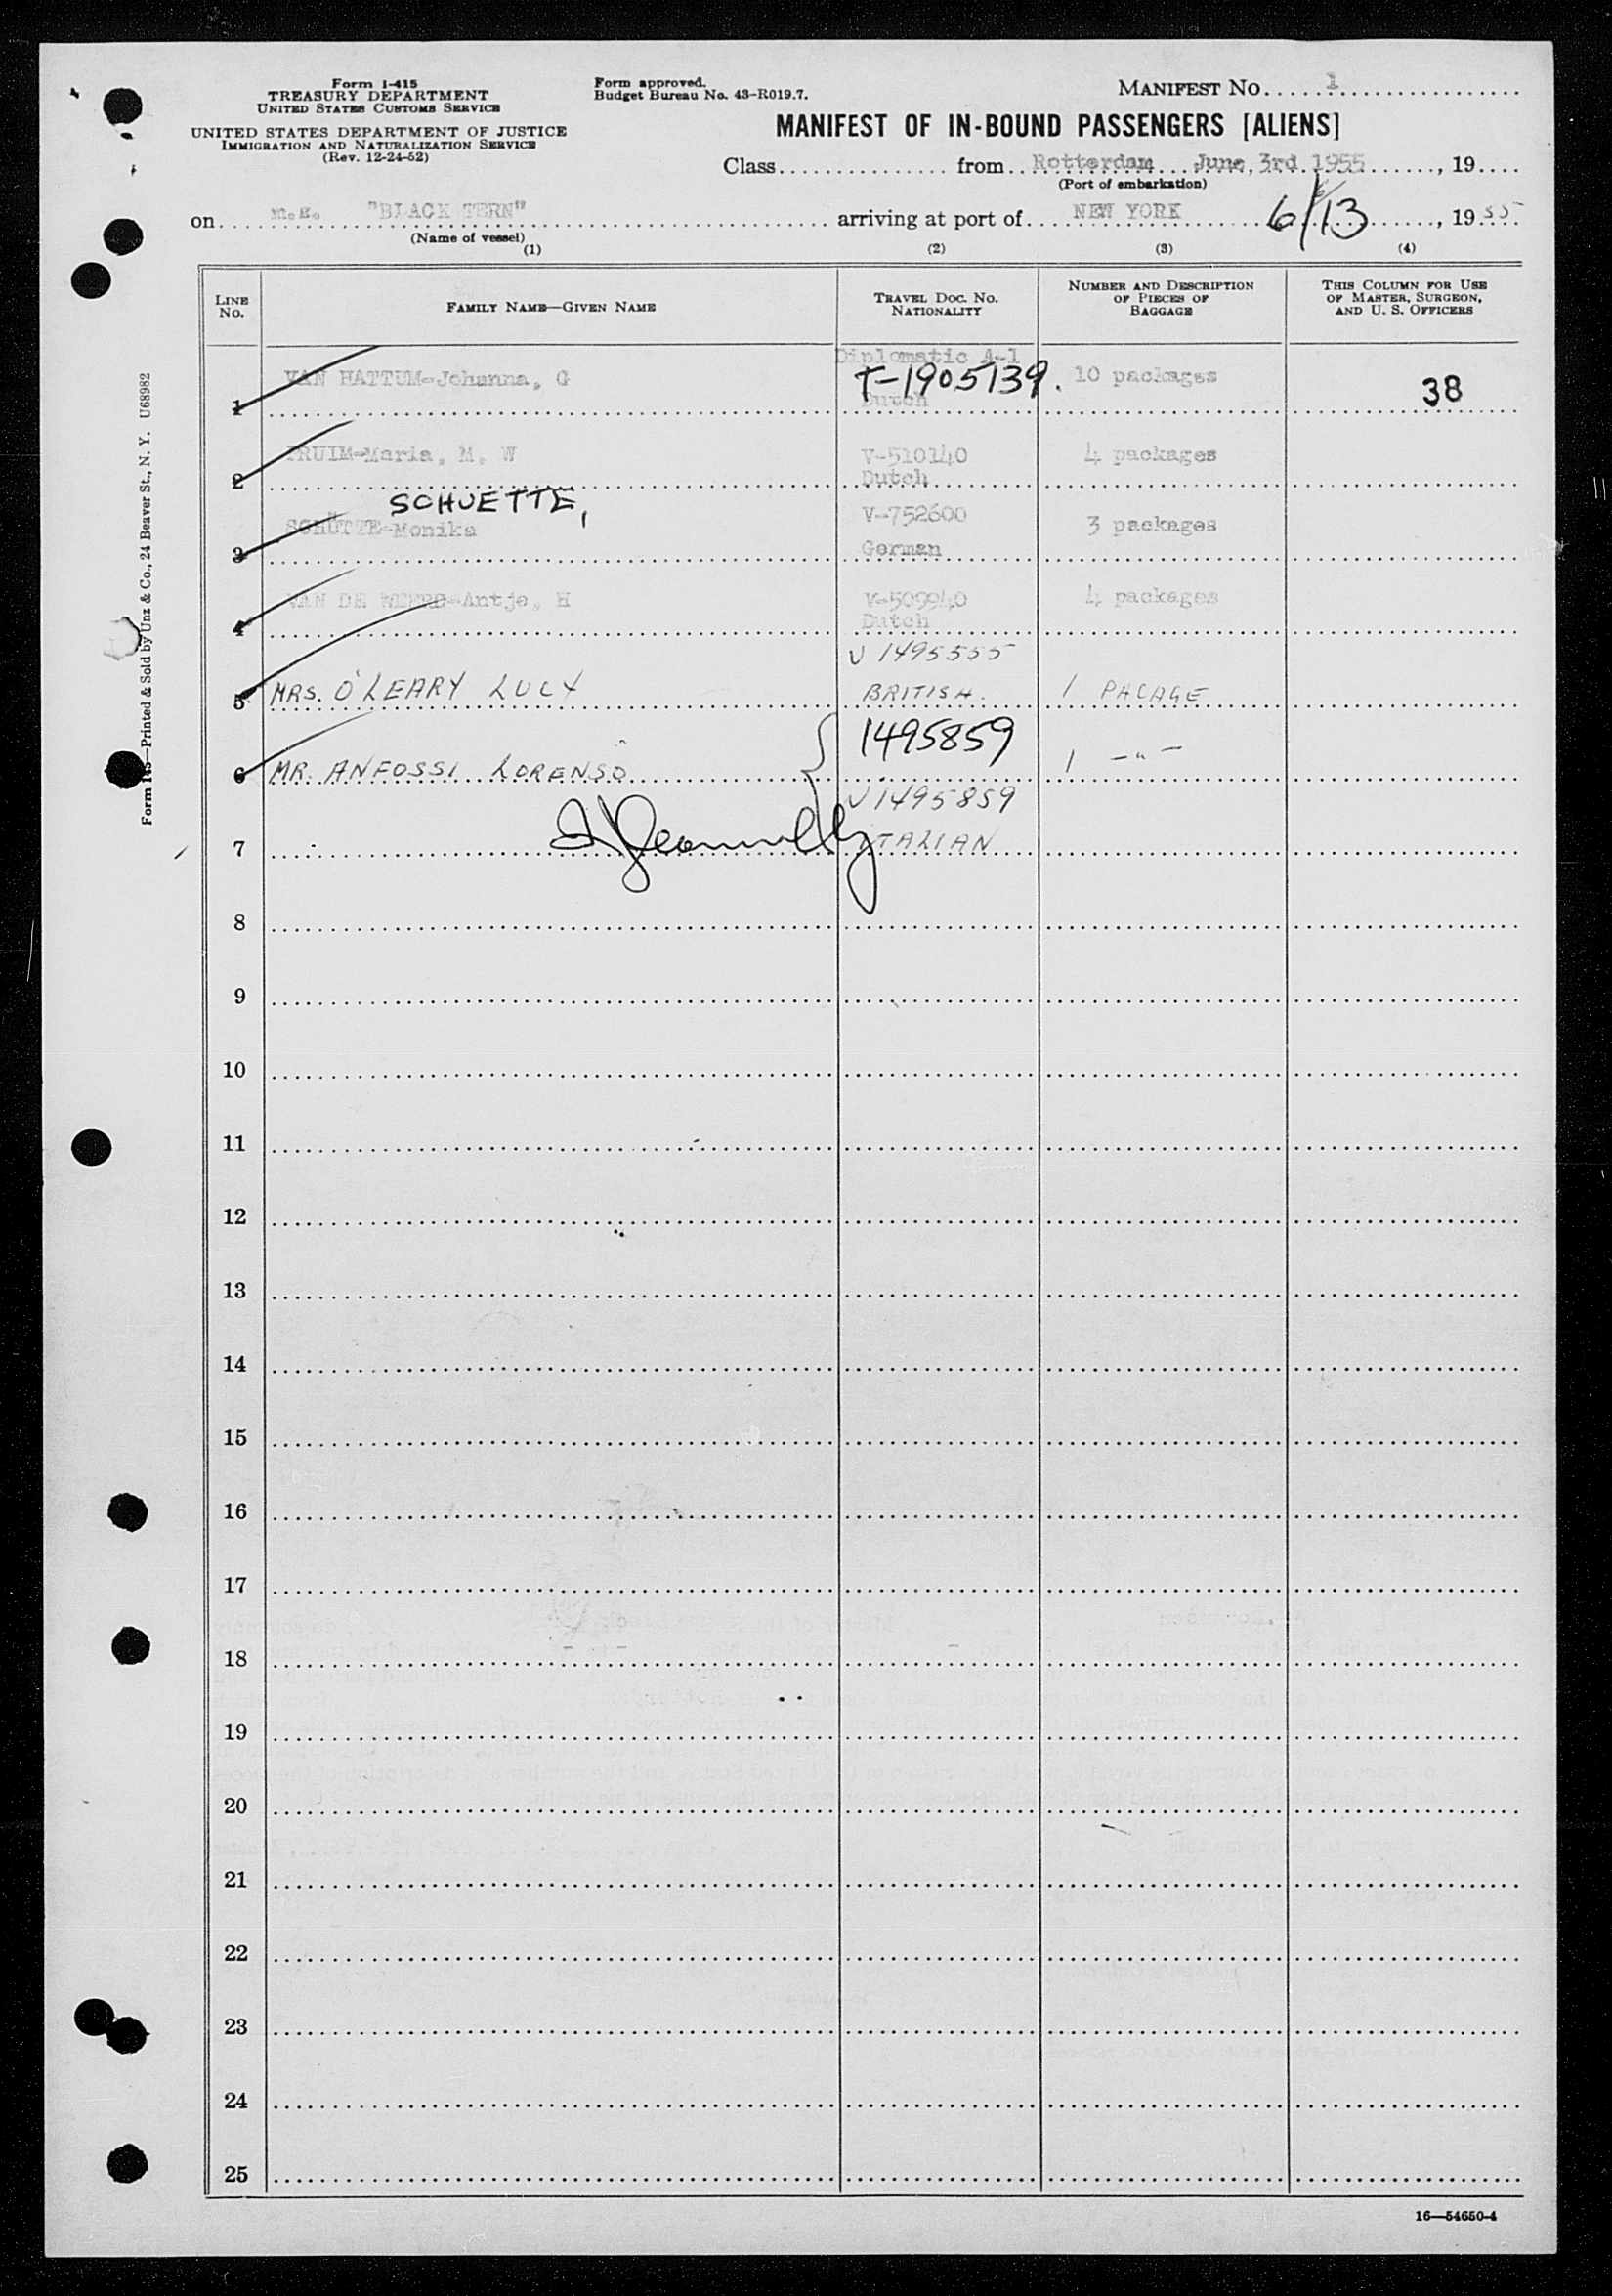 Form I-415
TREASURY DEPARTMENT
UNITED STATES CUSTOMS SERVICE
UNITED STATES DEPARTMENT OF JUSTICE
IMMIGRATION AND NATURALIZATION SERVICE
(Rev. 12-24-52)
Form approved.
Budget Bureau No. 43-R019.7.
MANIFEST NO. 1
MANIFEST OF IN-BOUND PASSENGERS [ALIENS]
Class from Rotterdam June, 3rd 1955, 19
(Port of embarkation)
on m.s. "BLACK TERN" arriving at port of NEW YORK 6/13, 1955
(Name of vessel)
(1) (2) (3) (4)
LINE NO.
FAMILY NAME—GIVEN NAME
TRAVEL DOC. NO. NATIONALITY
NUMBER AND DESCRIPTION OF PIECES OF BAGGAGE
THIS COLUMN FOR USE OF MASTER, SURGEON, AND U. S. OFFICERS
Diplomatic A-1
1 VAN HATTUM-Johanna, G T-1905139. 10 packages 38
Dutch
2 PRUIM-Maria, M. W V-510140 4 packages
Dutch
SCHUETTE,
3 SCHÜTTE-Monika V-752600 3 packages
German
4 VAN DE WEERD-Antje, H V-509940 4 packages
Dutch
V 1495555
5 MRS. O'LEARY LUCY BRITISH. 1 PACAGE
1495859
6 MR. ANFOSSI LORENSO 1 -"-
V 1495859
7 ITALIAN
8
9
10
11
12
13
14
15
16
17
18
19
20
21
22
23
24
25
16—54650-4
Form 145—Printed & Sold by Unz & Co., 24 Beaver St., N. Y. U68982